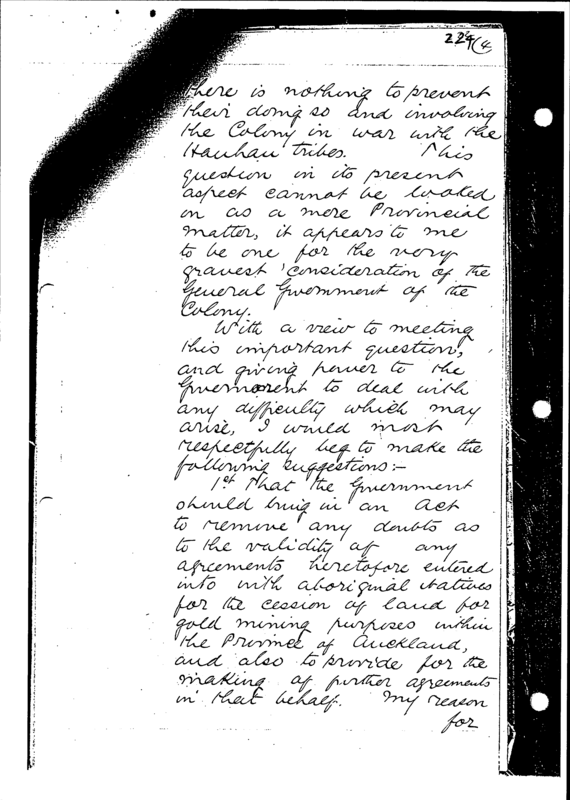 224/4
there is nothing to prevent
their doing so and involving
the Colony in war with the
Hauhau tribes. This
question in its present
aspect cannot be looked
on as a mere Provincial
matter, it appears to me
to be one for the very
gravest consideration of the
General Government of the
Colony.
With a view to meeting
this important question,
and giving power to the
Government to deal with
any difficulty which may
arise, I would most
respectfully beg to make the
following suggestions:-
1st That the Government
should bring in an Act
to remove any doubts as
to the validity of any
agreements heretofore entered
into with aboriginal Natives
for the cession of land for
gold mining purposes within
the Province of Auckland,
and also to provide for the
making of further agreements
in that behalf. My reason
for